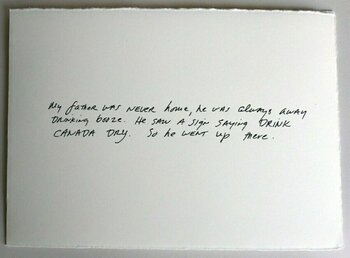 My father was never home, he was always away
Drinking booze. He saw a sign saying DRINK
CANADA DRY. So he went up there.